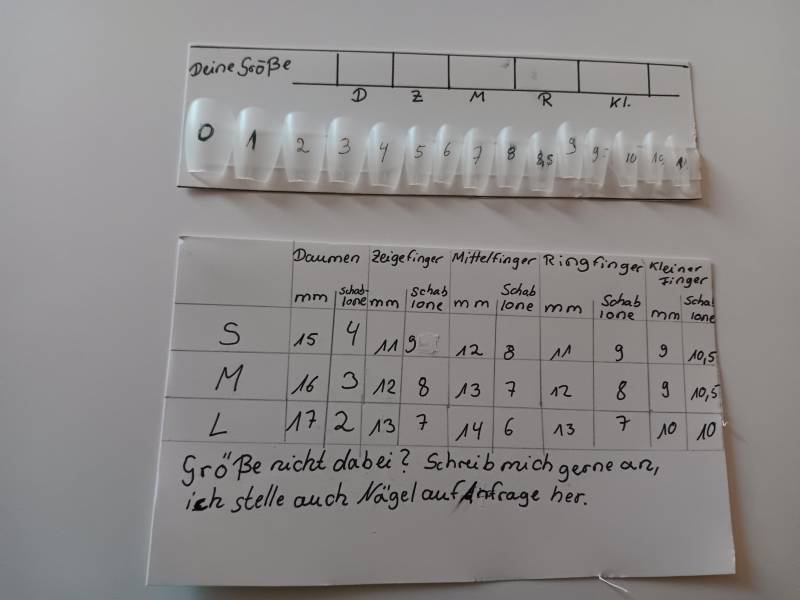 Deine Größe
D Z M R Kl.
0 1 2 3 4 5 6 7 8 8,5 9 9 10 10
Daumen Zeigefinger Mittelfinger Ringfinger Kleiner Finger
mm Schablone mm Schablone mm Schablone mm Schablone mm Schablone
S 15 4 11 9 12 8 11 9 9 10,5
M 16 3 12 8 13 7 12 8 9 10,5
L 17 2 13 7 14 6 13 7 10 10
Größe nicht dabei? Schreib mich gerne an,
ich stelle auch Nägel auf Anfrage her.